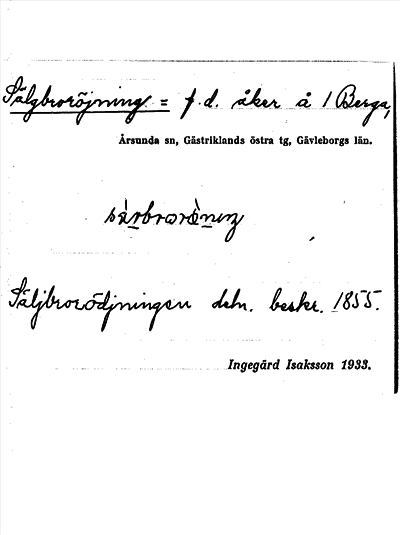 Sälgbroröjning = f.d. åker å 1 Berga,
Årsunda sn, Gästriklands östra tg, Gävleborgs län.
Säljbrorödjningen dshn. beskr. 1855.
Ingegärd Isaksson 1933.